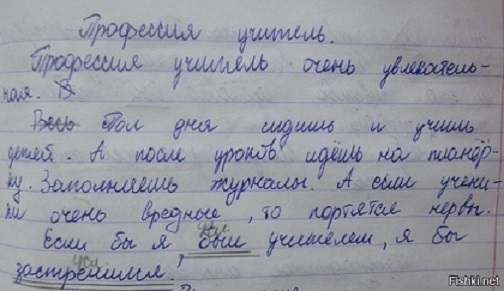 Профессия учитель.
Профессия учитель очень увлекатель-
ная.
Весь Пол дня сидишь и учишь
детей. А после уроков идёшь на планёр-
ку. Заполняешь журналы. А если учени-
ки очень вредные, то портятся нервы.
усл
Если бы я был учителем, я бы
усл
застрелился.
Fishki.net